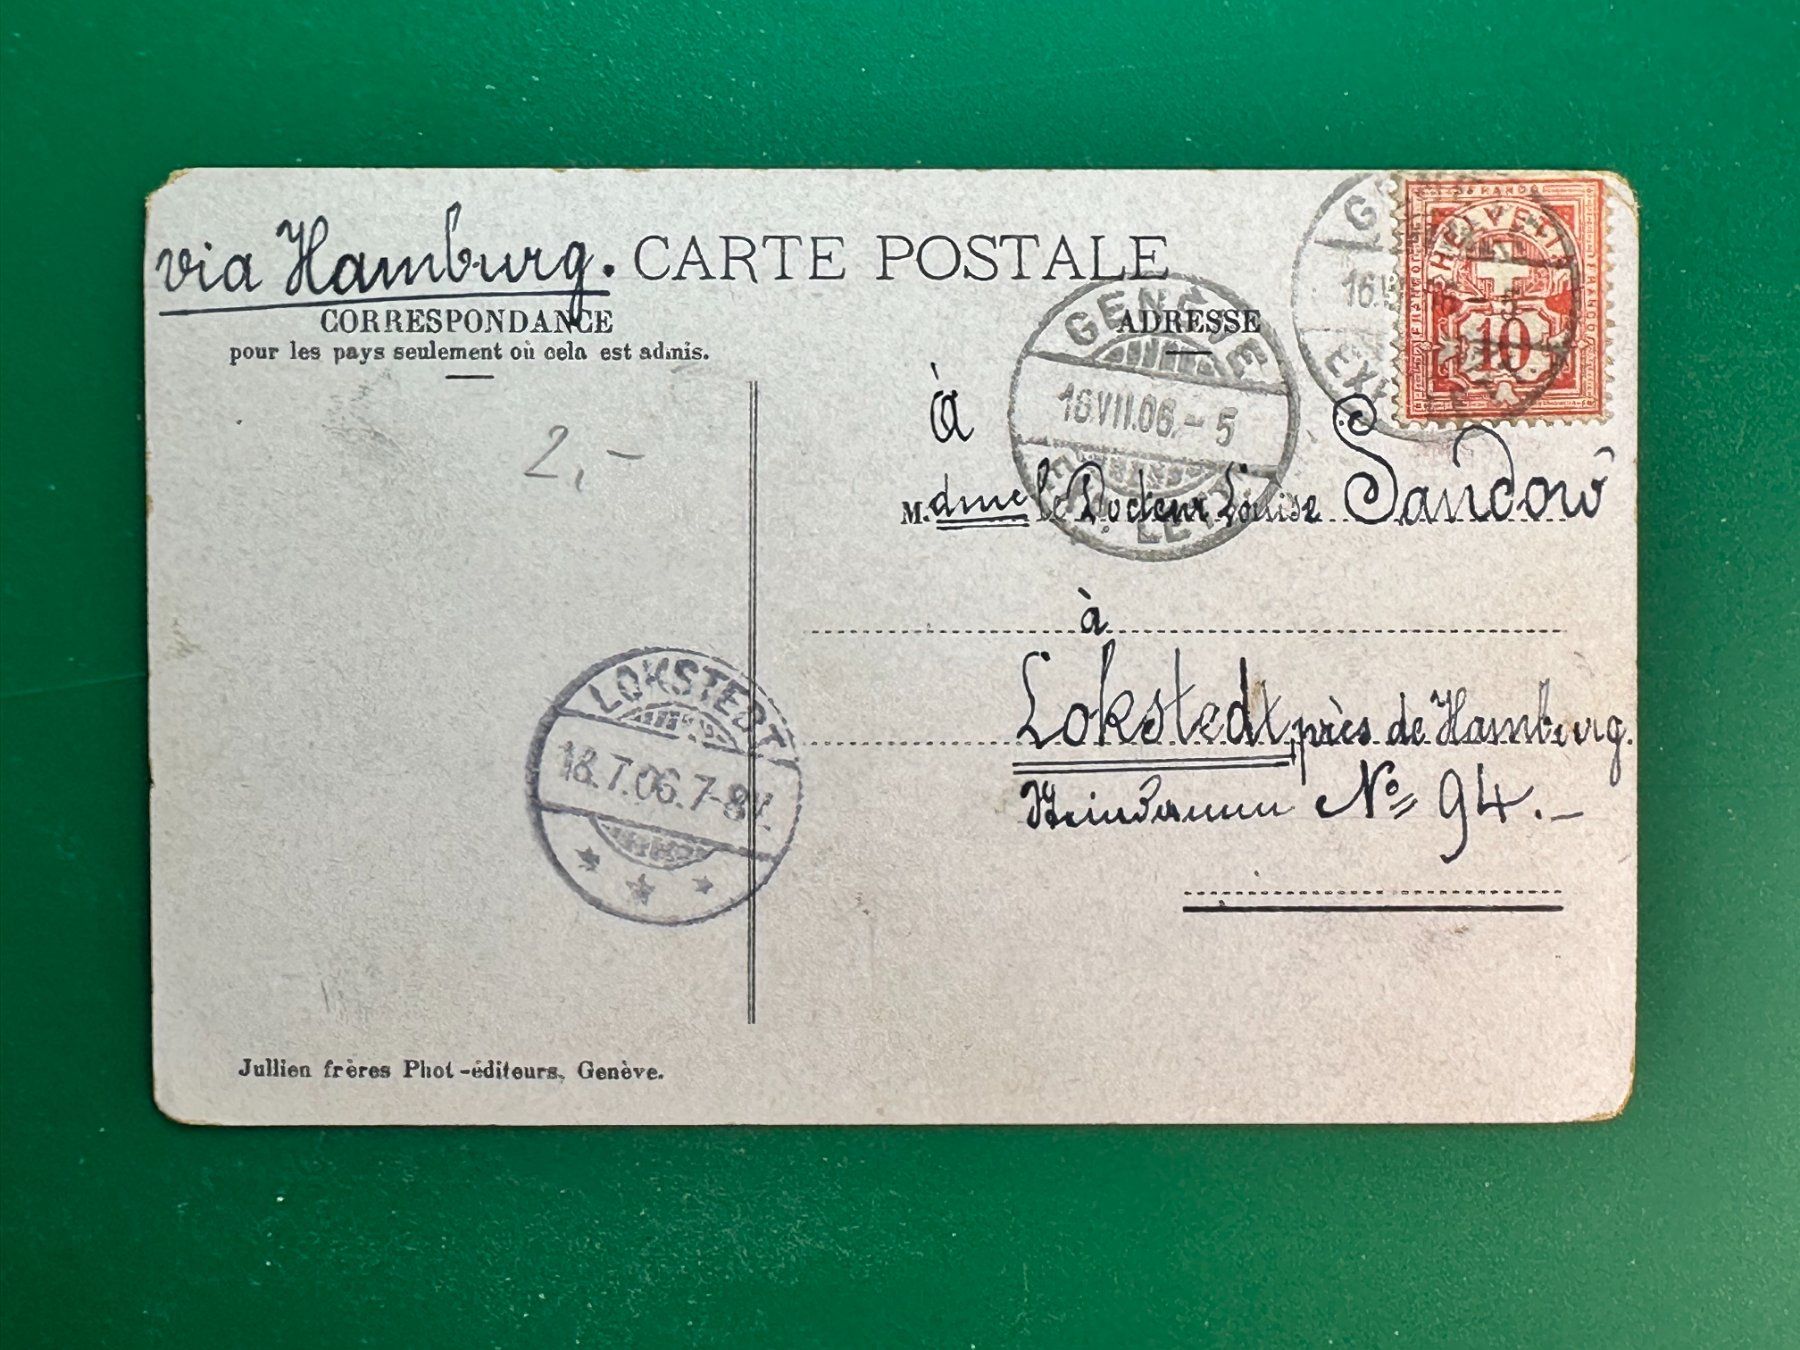 via Hamburg.
CARTE POSTALE
CORRESPONDANCE
pour les pays seulement où cela est admis.
ADRESSE
GENÈVE
16.VII.06.-5
EXP. LETT.
HELVETIA
10
16.V
2,-
à
M.dme le Docteur Louise Sandow
à
Lokstedt, près de Hamburg.
No 94.-
LOKSTEDT
18.7.06.7-8V.
Jullien frères Phot-éditeurs, Genève.